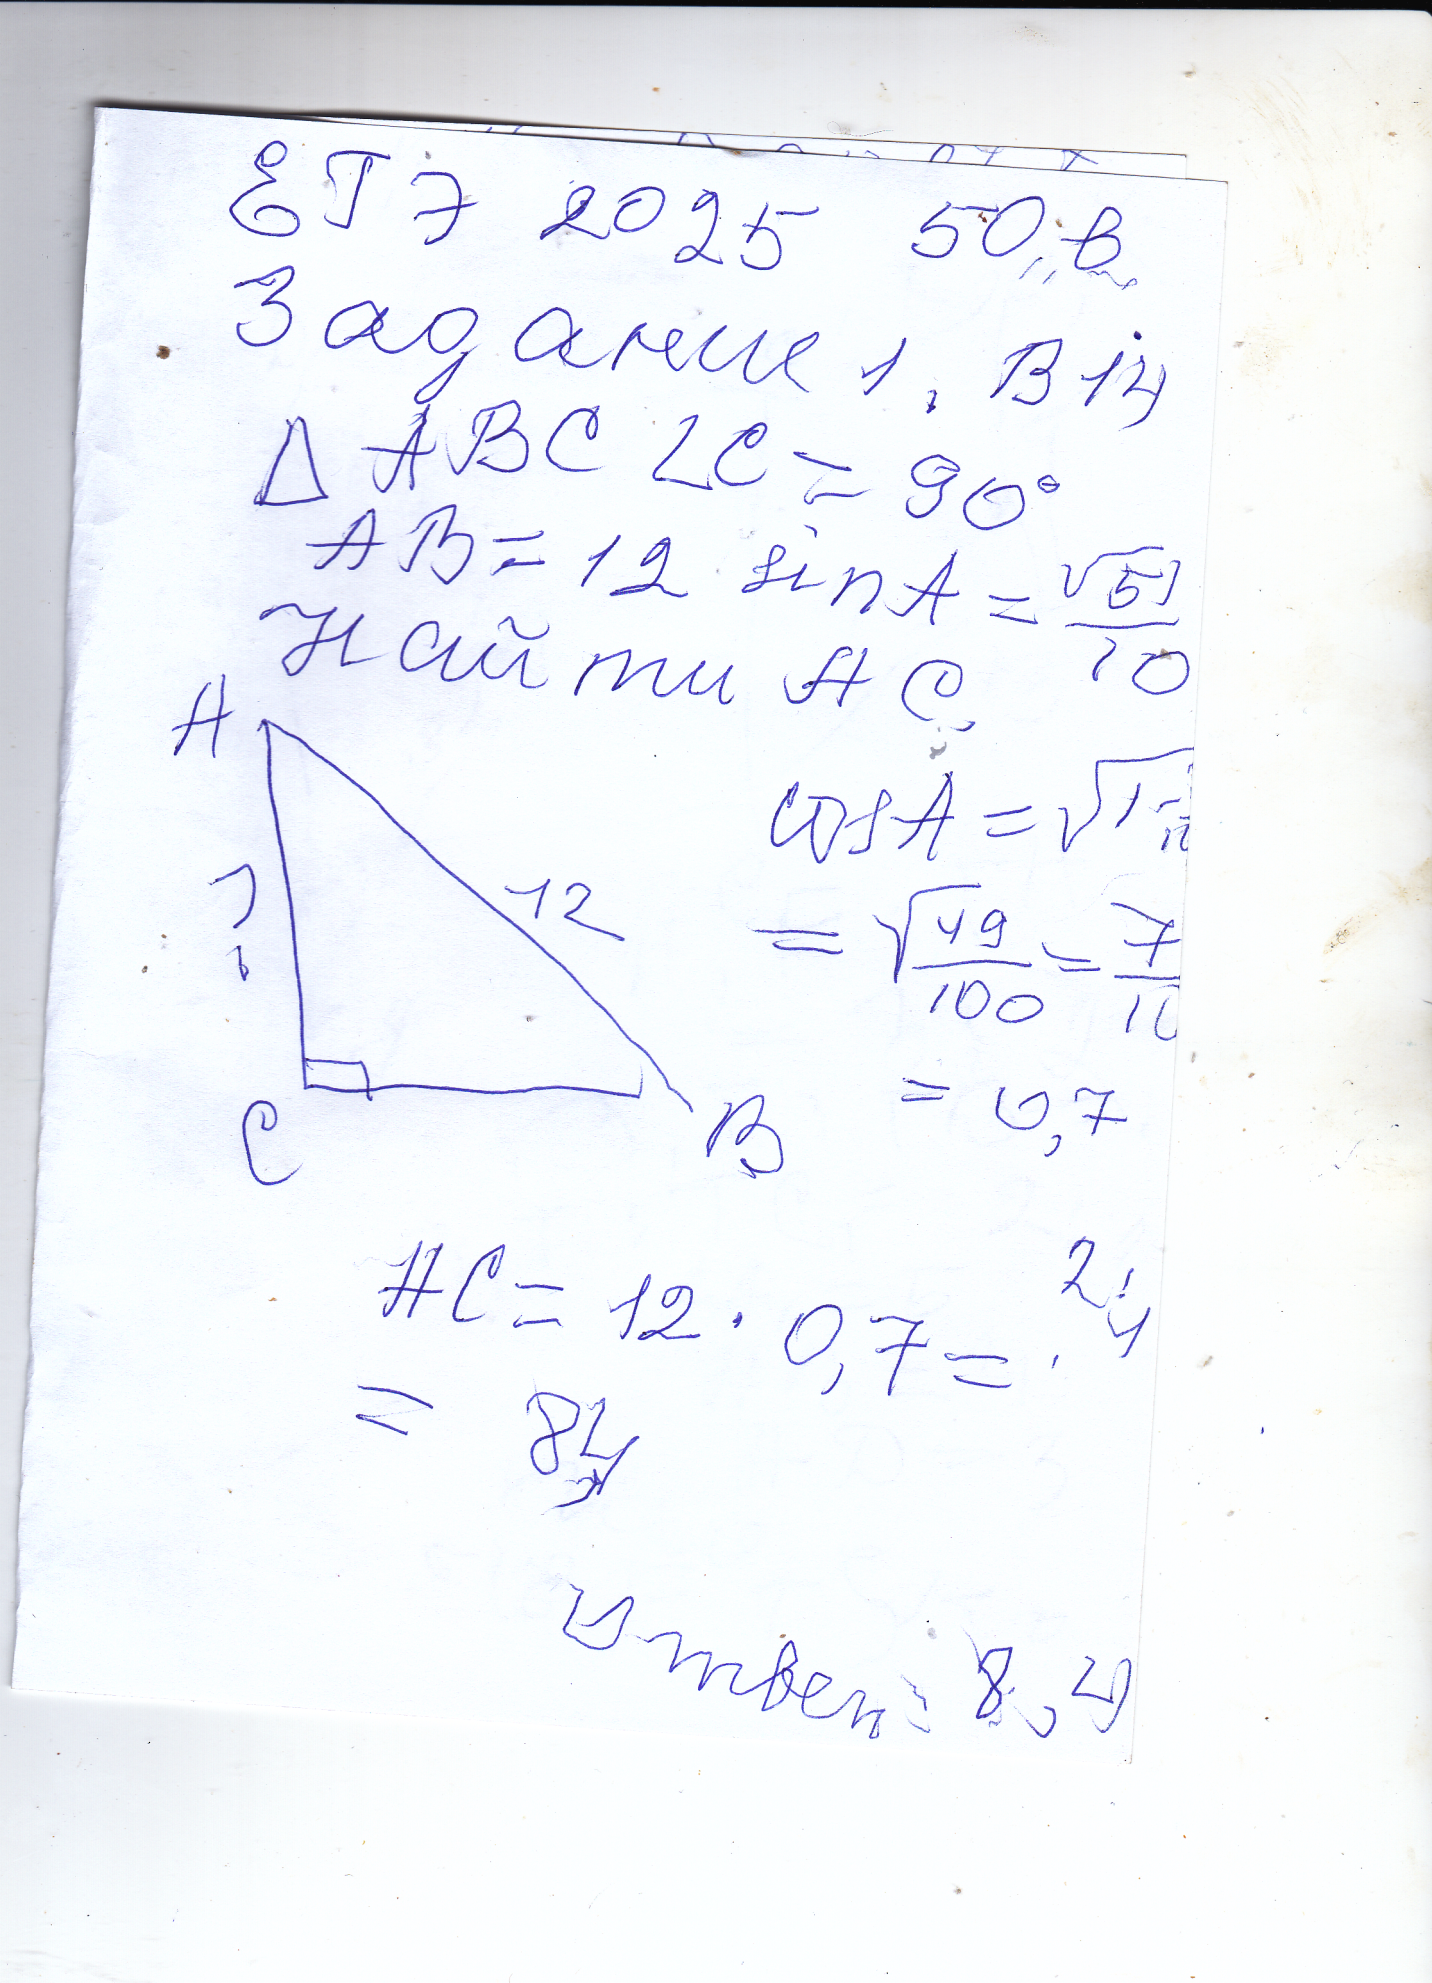 ЕГЭ 2025 50 в.
Задание 1, В 14
Δ ABC ∠C = 90°
AB = 12 sin A = √51/10
Найти AC
A
cos A = √1 -
?
12
= √49/100 = 7/10
= 0,7
C
B
AC = 12 · 0,7 =
= 8,4
Ответ: 8,4